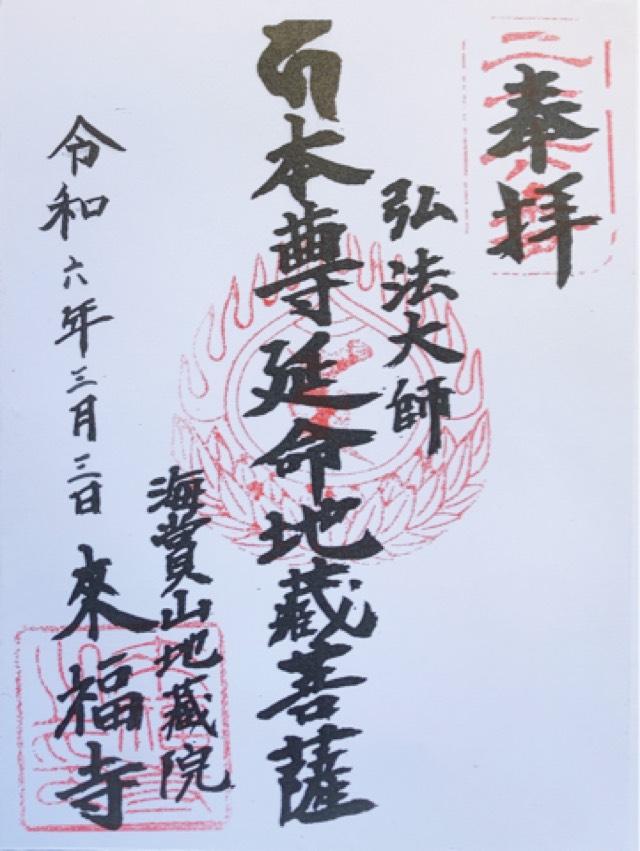 奉拝
弘法大師
本尊延命地蔵菩薩
海賞山地蔵院
令和六年三月三日
來福寺